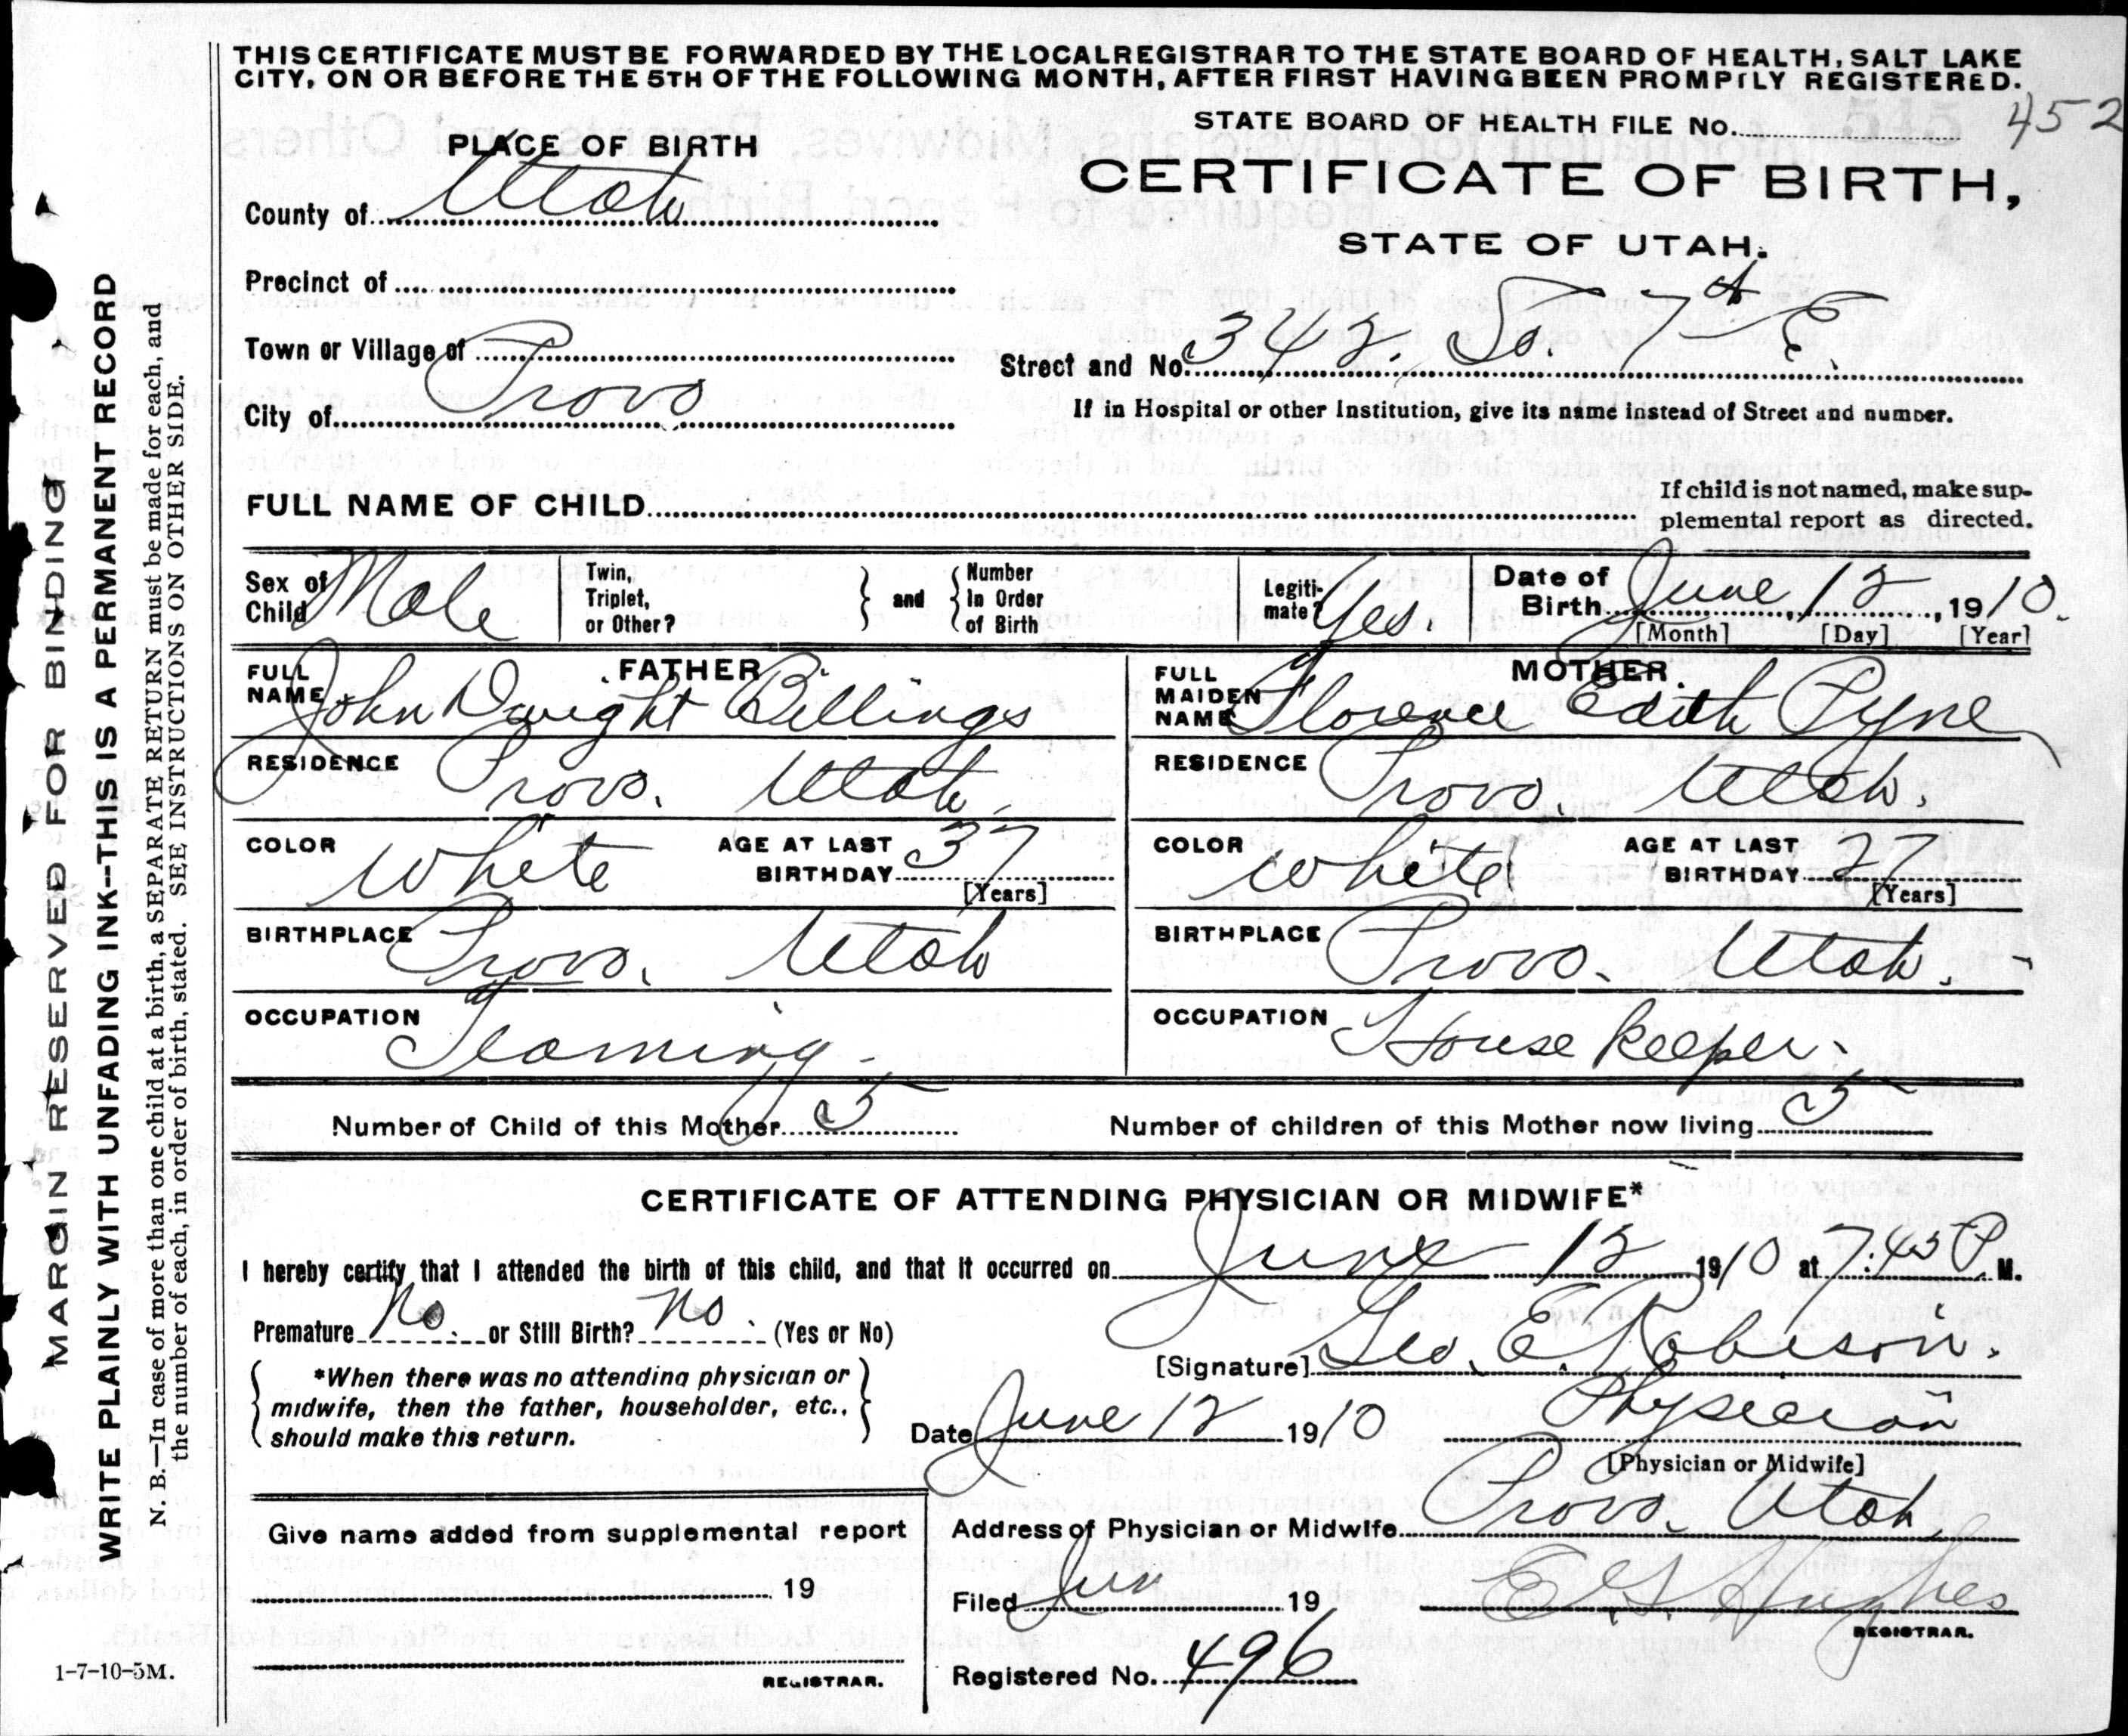 THIS CERTIFICATE MUST BE FORWARDED BY THE LOCAL REGISTRAR TO THE STATE BOARD OF HEALTH, SALT LAKE
CITY, ON OR BEFORE THE 5TH OF THE FOLLOWING MONTH, AFTER FIRST HAVING BEEN PROMPTLY REGISTERED.
STATE BOARD OF HEALTH FILE No. 452
PLACE OF BIRTH
CERTIFICATE OF BIRTH,
STATE OF UTAH.
County of Utah
Precinct of
Town or Village of
City of Provo
Street and No. 342. So. 7th E.
If in Hospital or other Institution, give its name instead of Street and number.
FULL NAME OF CHILD
If child is not named, make sup-
plemental report as directed.
Sex of Child Male
Twin, Triplet, or Other?
and
Number In Order of Birth
Legiti-mate? Yes.
Date of Birth June 12, 1910.
[Month] [Day] [Year]
FATHER
FULL NAME John Dwight Billings
RESIDENCE Provo. Utah.
COLOR White AGE AT LAST BIRTHDAY 37
[Years]
BIRTHPLACE Provo. Utah
OCCUPATION Teaming
MOTHER
FULL MAIDEN NAME Florence Edith Pyne
RESIDENCE Provo. Utah.
COLOR White AGE AT LAST BIRTHDAY 27
[Years]
BIRTHPLACE Provo. Utah.
OCCUPATION House Keeper.
Number of Child of this Mother 5
Number of children of this Mother now living 5
CERTIFICATE OF ATTENDING PHYSICIAN OR MIDWIFE*
I hereby certify that I attended the birth of this child, and that it occurred on June 12 1910 at 7:45 P. M.
Premature No or Still Birth? No (Yes or No)
*When there was no attending physician or
midwife, then the father, householder, etc.,
should make this return.
[Signature] Geo. E. Robison.
Date June 12 1910 Physician
[Physician or Midwife]
Address of Physician or Midwife Provo. Utah.
Give name added from supplemental report
19
REGISTRAR.
Filed Jun 19 E G Hughes
REGISTRAR.
Registered No. 496
1-7-10-5M.
MARGIN RESERVED FOR BINDING
WRITE PLAINLY WITH UNFADING INK--THIS IS A PERMANENT RECORD
N. B.—In case of more than one child at a birth, a SEPARATE RETURN must be made for each, and
the number of each, in order of birth, stated. SEE INSTRUCTIONS ON OTHER SIDE.